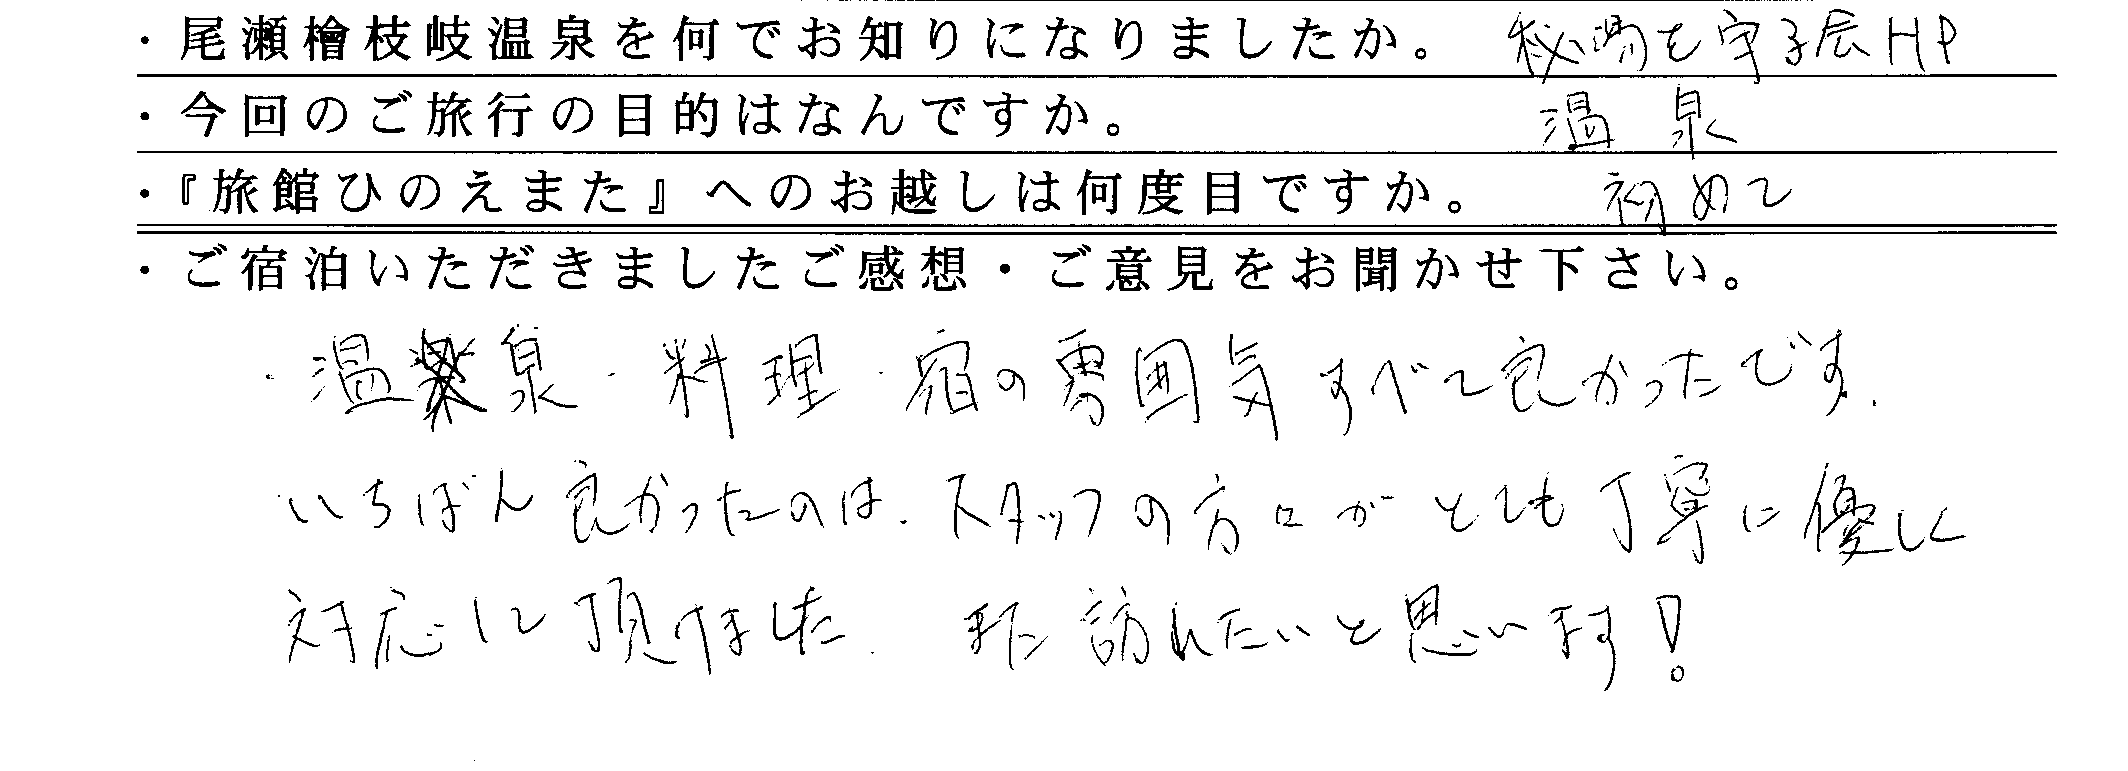 ・尾瀬檜枝岐温泉を何でお知りになりましたか。 秘湯を守る会HP
・今回のご旅行の目的はなんですか。 温泉
・『旅館ひのえまた』へのお越しは何度目ですか。 初めて
・ご宿泊いただきましたご感想・ご意見をお聞かせ下さい。
・温泉・料理・宿の雰囲気すべて良かったです。
いちばん良かったのは、スタッフの方々がとても丁寧に優しく
対応して頂けました。また訪れたいと思います!